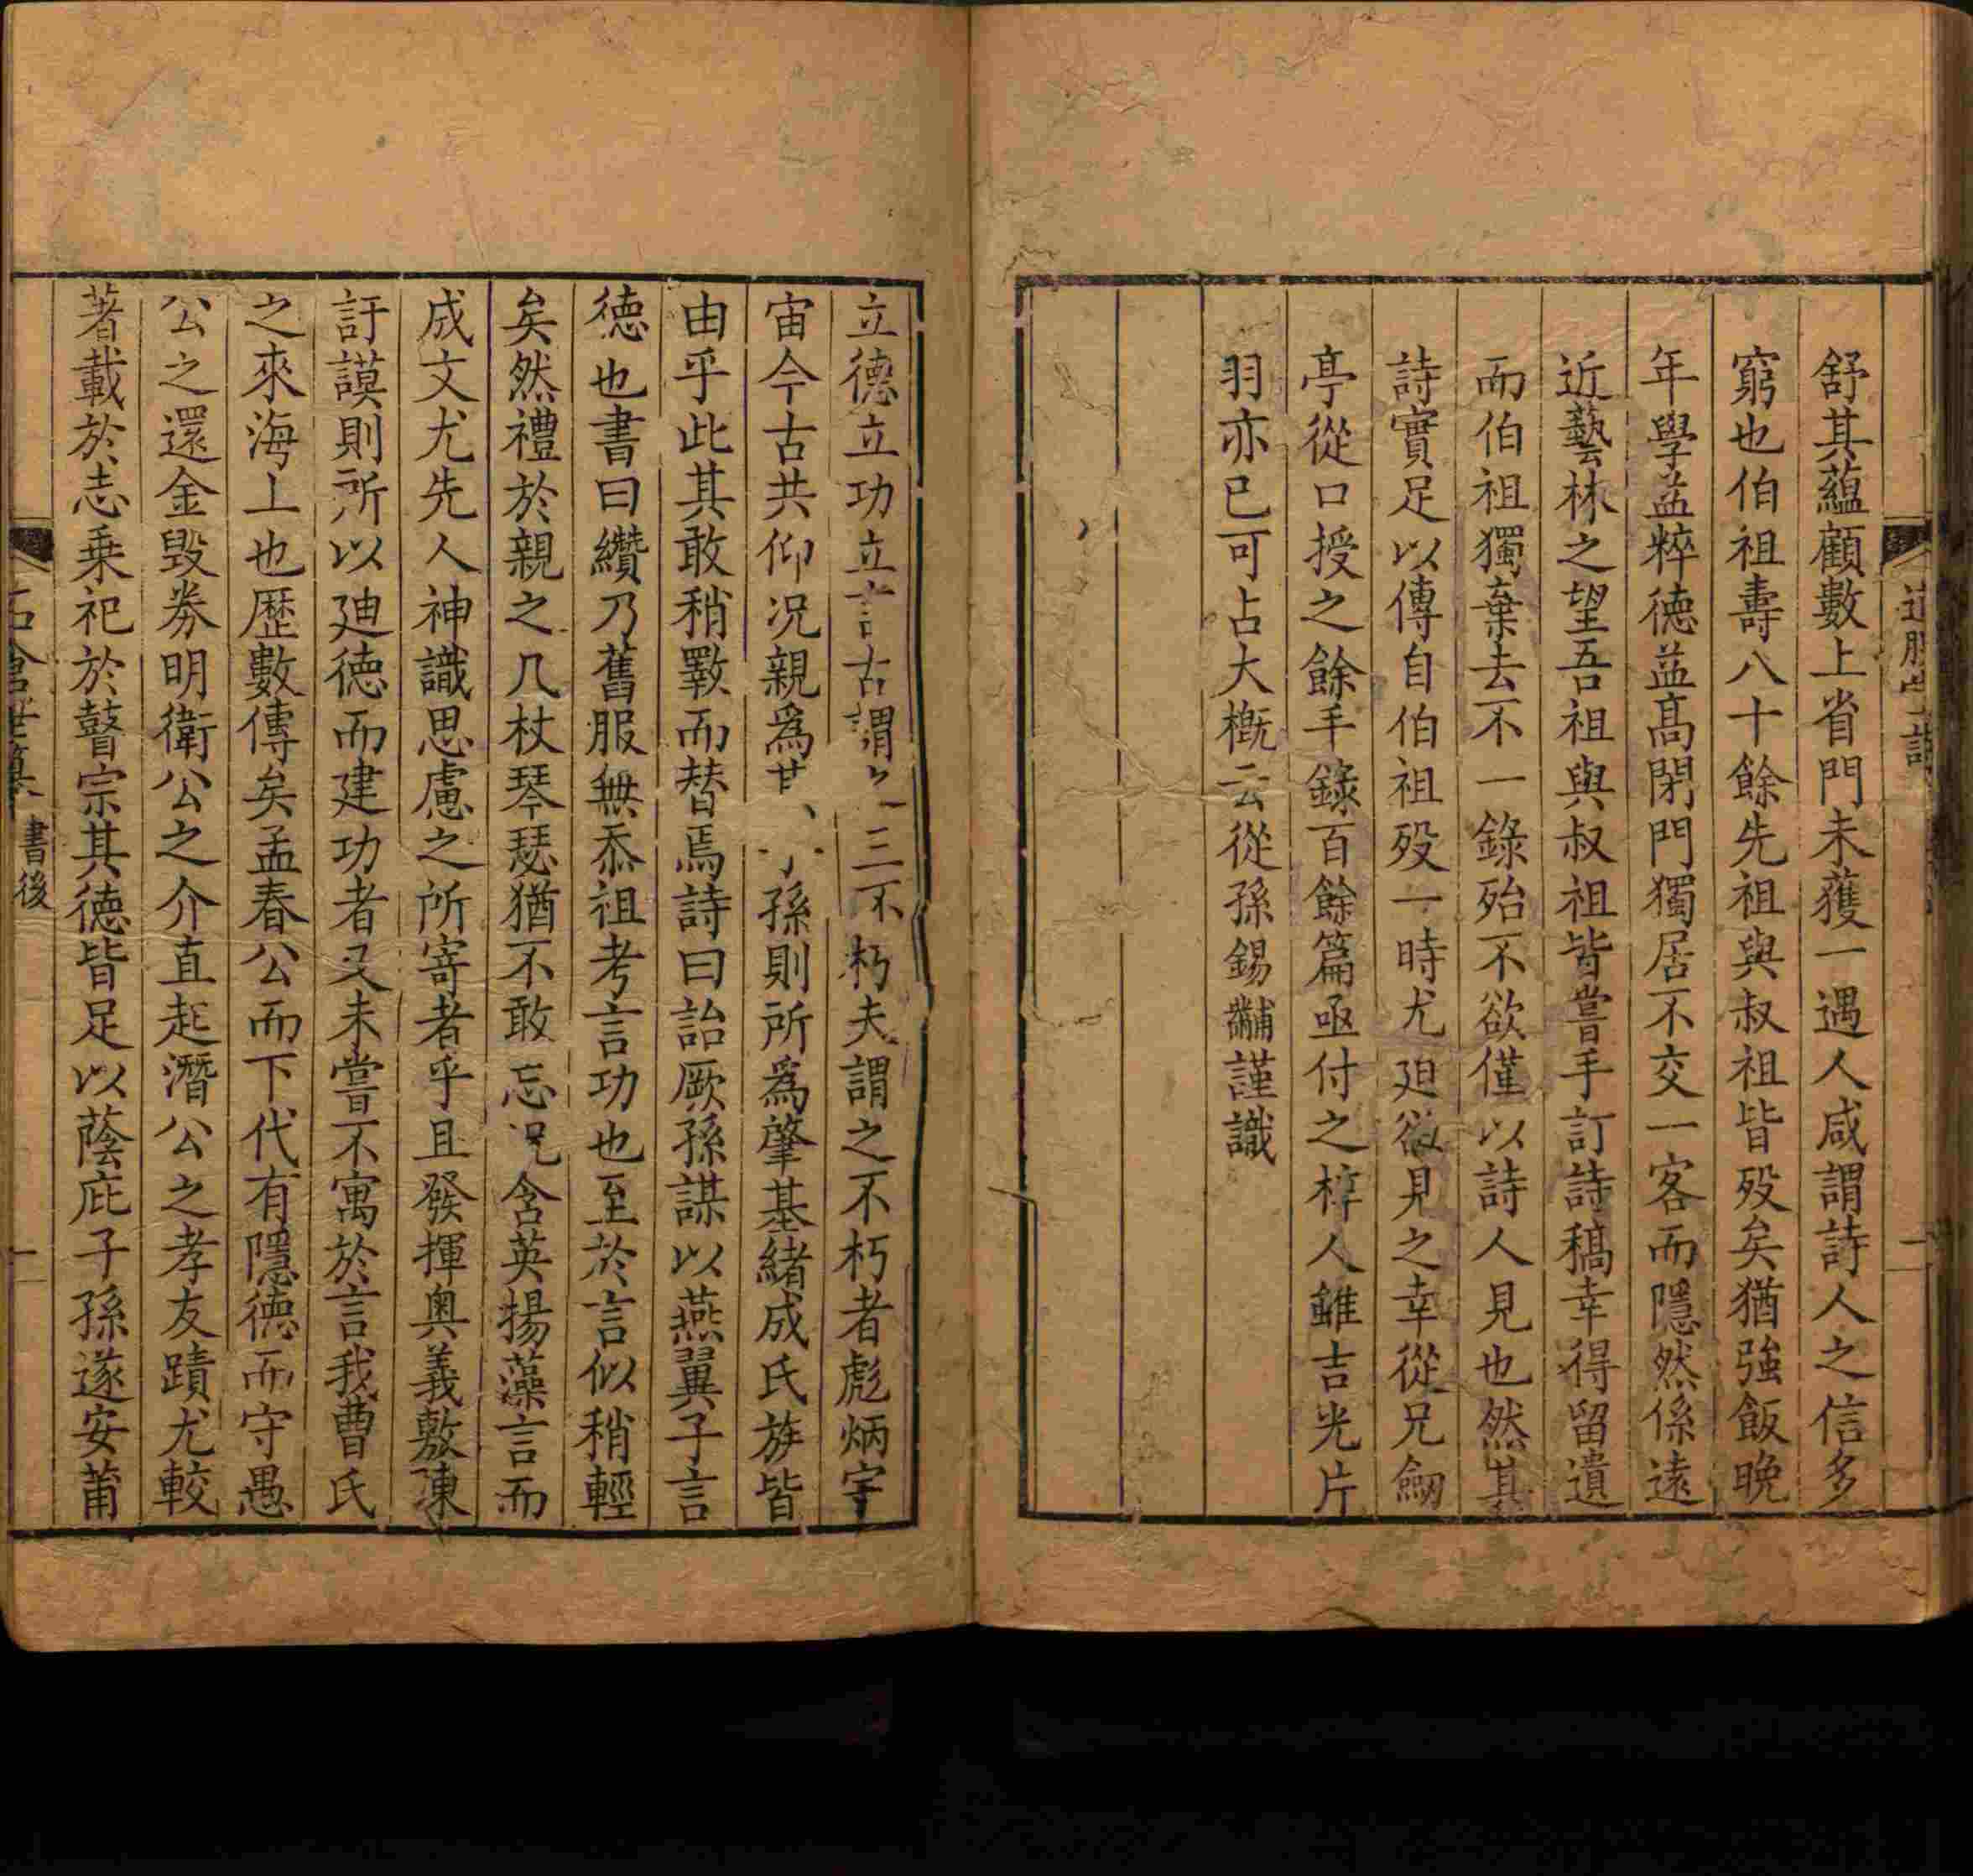 舒其蘊顧數上省門未獲一遇人咸謂詩人之信多
窮也伯祖壽八十餘先祖與叔祖皆歿矣猶強飯晚
年學益粹德益高閉門獨居不交一客而隱然係遠
近藝林之望吾祖與叔祖皆嘗手訂詩稿幸得留遺
而伯祖獨棄去不一錄殆不欲僅以詩人見也然其
詩實足以傳自伯祖歿一時尤廹欲見之幸從兄劒
亭從口授之餘手錄百餘篇亟付之梓人雖吉光片
羽亦已可占大槪云從孫錫黼謹識
立德立功立言古謂三不朽夫謂之不朽者彪炳宇
宙今古共仰况親爲孫則所爲肇基緒成氏族皆
由乎此其敢稍斁而替焉詩曰詒厥孫謀以燕翼子言
德也書曰纘乃舊服無忝祖考言功也至於言似稍輕
矣然禮於親之几杖琴瑟猶不敢忘况含英揚藻言而
成文尤先人神識思慮之所寄者乎且發揮奥義敷陳
訏謨則所以廸德而建功者又未嘗不寓於言我曹氏
之來海上也歷數傳矣孟春公而下代有隱德而守愚
公之還金毁券明衛公之介直起潛公之孝友蹟尤較
著載於志乗祀於瞽宗其德皆足以蔭庇子孫遂安莆
書後
一